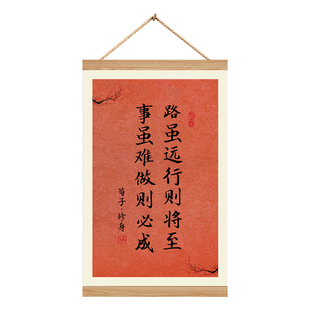 路虽远行则将至
事虽难做则必成
荀子·修身